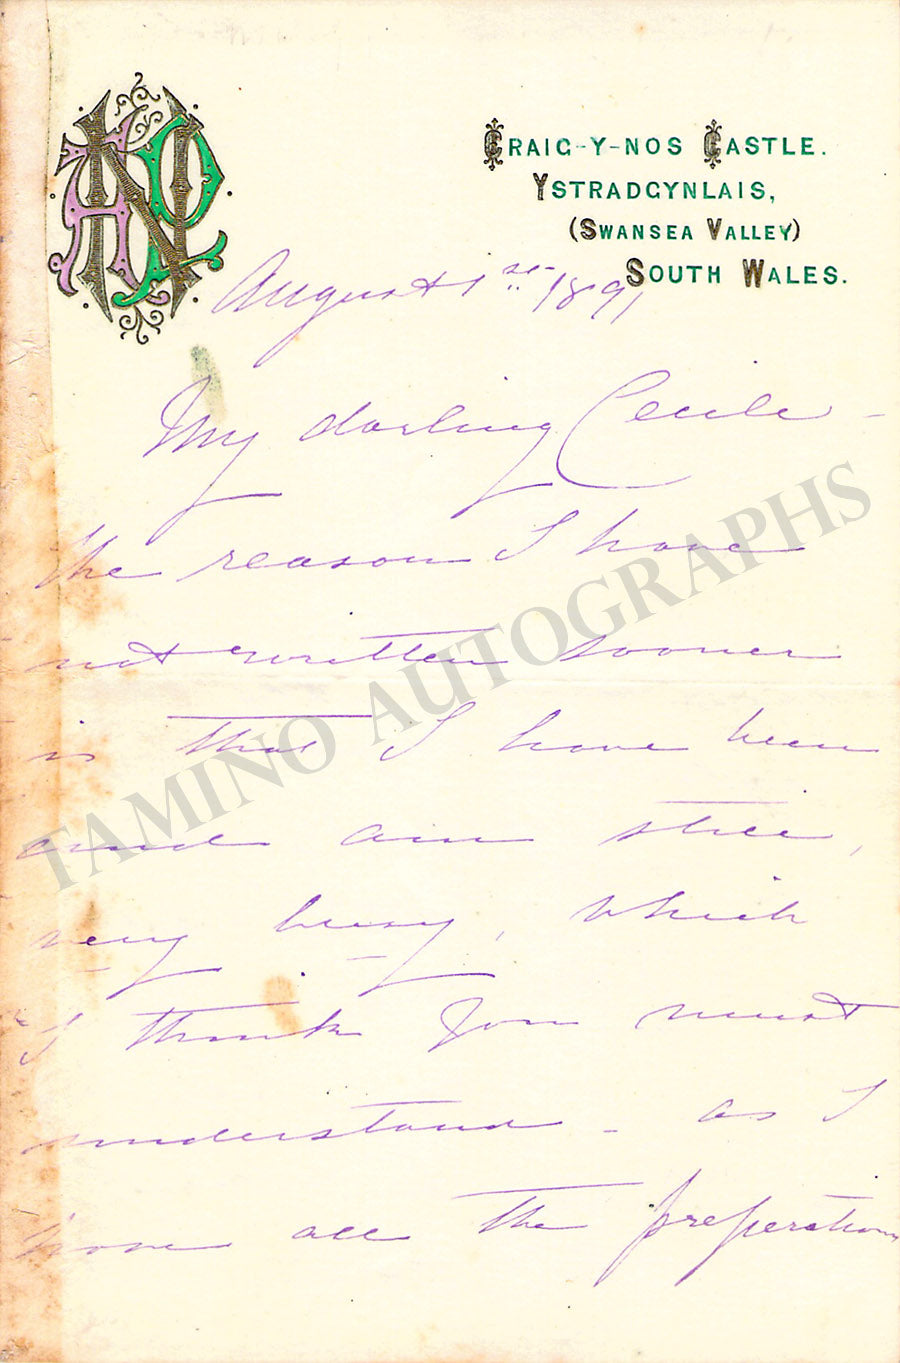 CRAIG-Y-NOS CASTLE.
YSTRADGYNLAIS,
(SWANSEA VALLEY)
SOUTH WALES.
August 1st 1891
My darling Cecile -
the reason I have
not written sooner
is that I have been
and am still,
very busy, which
I think you must
understand - as I
have all the preperations
TAMINO AUTOGRAPHS